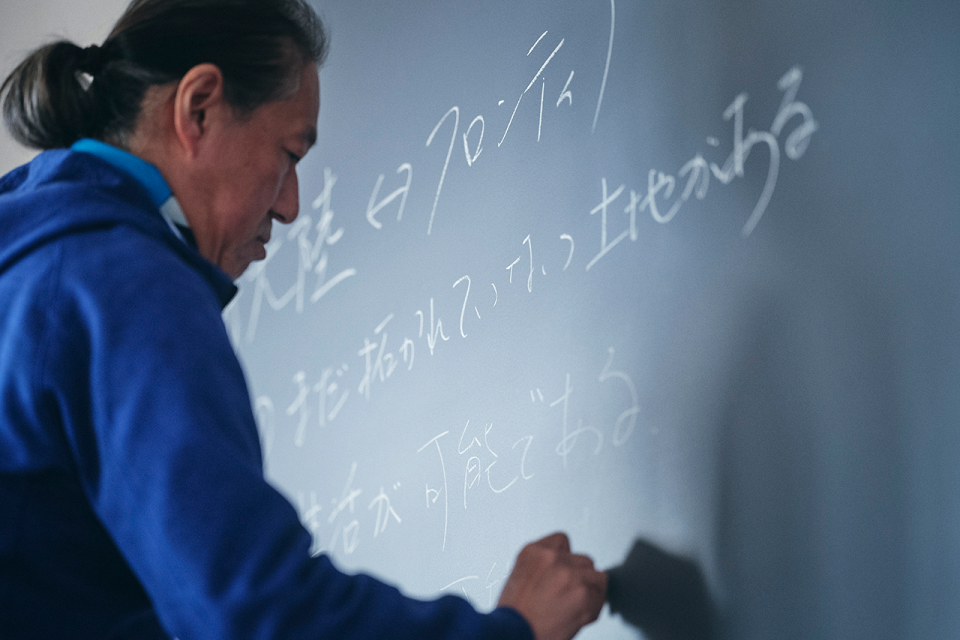 陸(フロンティア)
まだ拓かれていない土地がある
生活が可能である